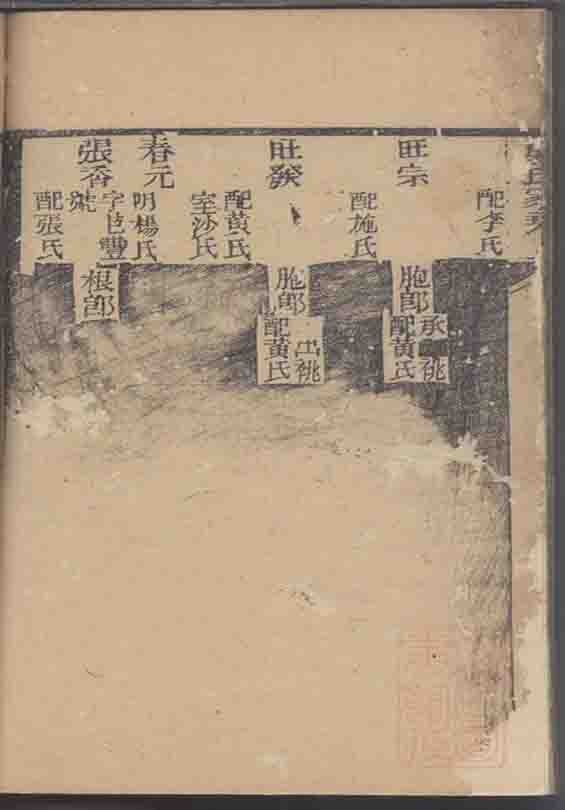 配李氏
旺宗
配施氏
胞郎
承祧
配黃氏
旺發
配黃氏
室沙氏
胞郎
出祧
配黃氏
春元
明楊氏
張香
字豐
號
配張氏
根郎